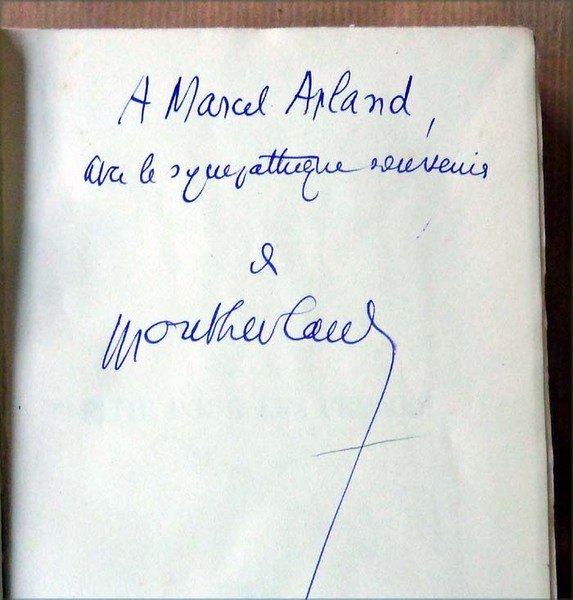 A Marcel Arland,
avec le sympathique souvenir
de
Montherlant